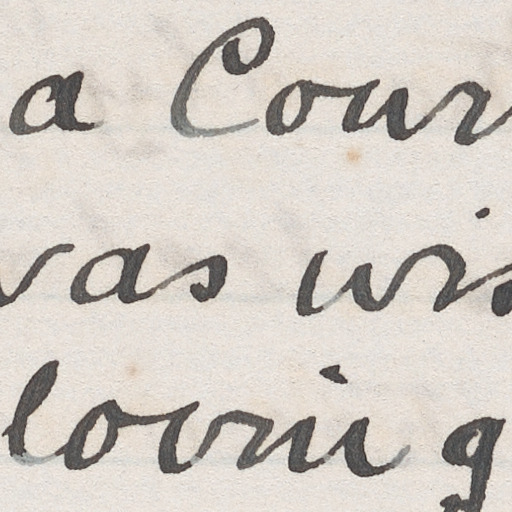 a Cour
vas wis
loving